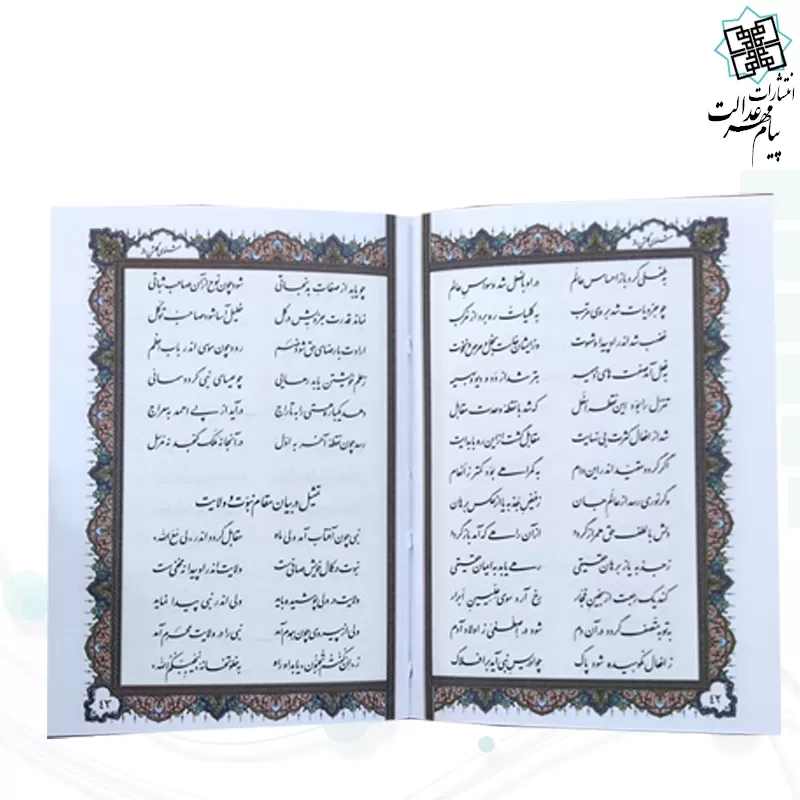 انتشارات
پیام مهر عدالت
مثنوی گلشن راز
بطفلی کرد باز احساس عالم در او بالفعل شد وسواس عالم
چو جزویات شد بر وی مرتب به کلیات ره برد از مرکب
غضب شد اندر او پیدا و شهوت وز ایشان خاست بخل و حرص و نخوت
بفعل آمد صفت های ذمیمه بتر شد از دد و دیو و بهیمه
تنزل را بود این نقطه اسفل که شد با نقطه وحدت مقابل
شد از افعال کثرت بی نهایت مقابل گشت از این رو با بدایت
اگر گردد مقید اندر این دام به گمراهی بود کمتر ز انعام
وگر نوری رسد از عالم جان ز فیض جذبه یا از عکس برهان
دلش با لطف حق همراز گردد از آن راهی که آمد باز گردد
ز جذبه یا ز برهان حقیقی رهی یابد به ایمان حقیقی
کند یک رجعت از سجین فجار رخ آرد سوی علیین ابرار
به توبه متصف گردد در آن دم شود در اصطفی ز اولاد آدم
ز افعال نکوهیده شود پاک چو ادریس نبی آید بر افلاک
۴۲
مثنوی گلشن راز
چو یابد از صفات بد نجاتی شود چون نوح از آن صاحب ثباتی
نماند قدرت جزویش در کل خلیل آسا شود صاحب توکل
ارادت با رضای حق شود ضم رود چون موسی اندر باب اعظم
ز علم خویشتن یابد رهایی چو عیسای نبی گردد سمائی
دهد یکباره هستی را به تاراج درآید از پی احمد به معراج
رسد چون نقطه آخر به اول در آنجا نه ملک گنجد نه مرسل
تمثیل در بیان مقام نبوت و ولایت
نبی چون آفتاب آمد ولی ماه مقابل گردد اندر «لی مع الله»
نبوت در کمال خویش صافی است ولایت اندر او پیدا نه مخفی است
ولایت در ولی پوشیده باید ولی اندر نبی پیدا نماید
ولی از پیروی چون همدم آمد نبی را در ولایت محرم آمد
ز «ان کنتم تحبون» یابد او راه به خلوتخانه «یحببکم الله»
۴۳